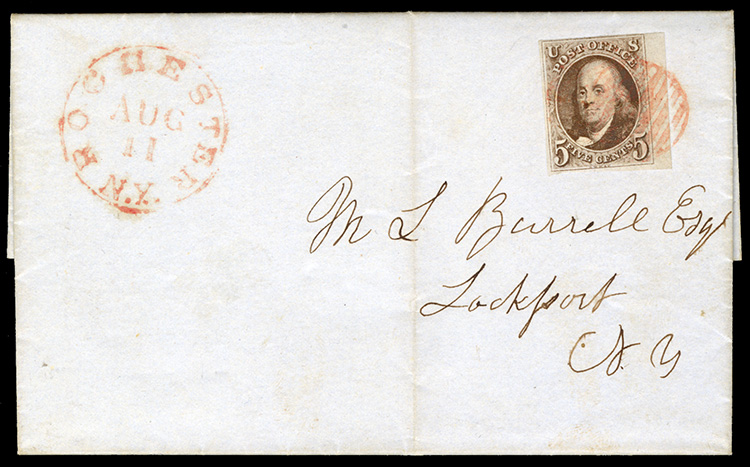 ROCHESTER N.Y.
AUG
11
U S
POST OFFICE
FIVE CENTS
5 5
M L Burrell Esqr
Lockport
N. Y